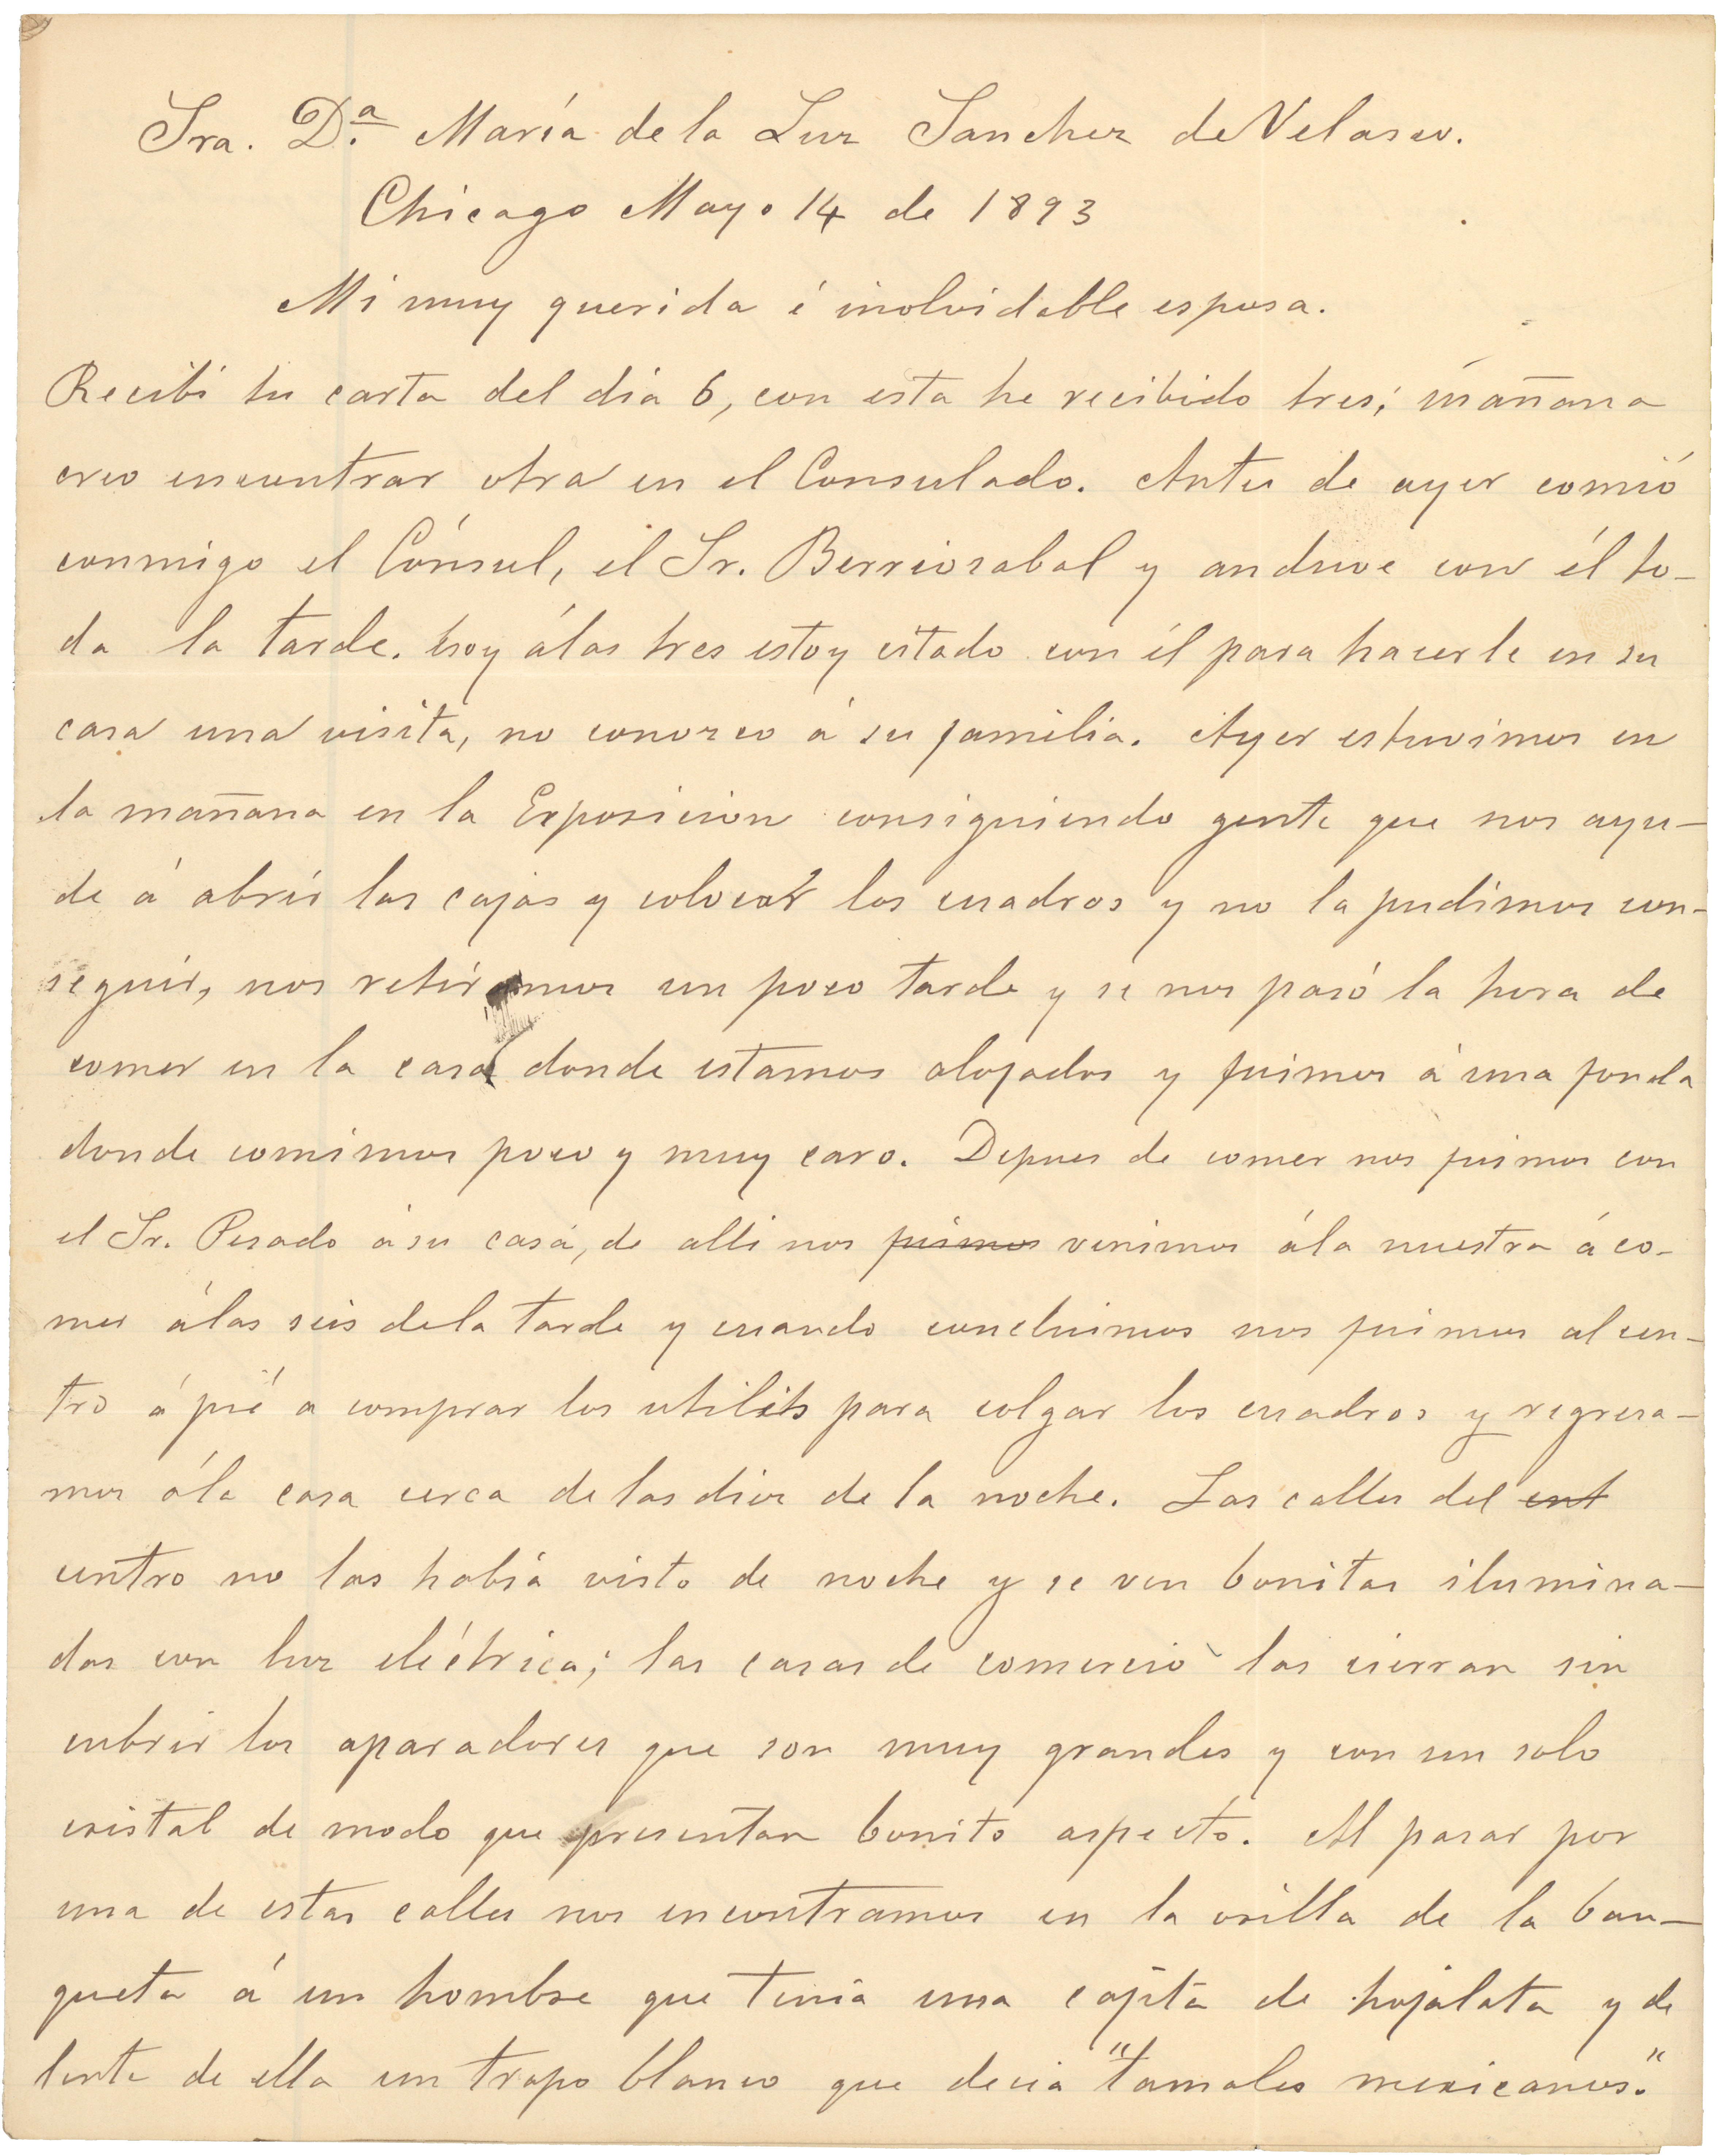 Sra. D.ª María de la Luz Sanchez de Velasco.
Chicago Mayo 14 de 1893
Mi muy querida é inolvidable esposa.
Recibí tu carta del dia 6, con esta he recibido tres; mañana
creo encontrar otra en el Consulado. Antes de ayer comió
conmigo el Cónsul, el Sr. Berriozabal y anduve con él to-
da la tarde. hoy álas tres estoy citado con él para hacerle en su
casa una visita, no conozco á su familia. Ayer estuvimos en
la mañana en la Exposicion consiguiendo gente que nos ayu-
de á abrir las cajas y colocar los cuadros y no la pudimos con-
seguir, nos retiramos un poco tarde y se nos pasó la hora de
comer en la casa donde estamos alojados y fuimos á una fonda
donde comimos poco y muy caro. Depues de comer nos fuimos con
el Sr. Pesado á su casa, de alli nos fuimos venimos ála nuestra á co-
mer álas seis dela tarde y cuando concluimos nos fuimos al cen-
tro á pié a comprar los utiles para colgar los cuadros y regresa-
mos ála casa cerca de las diez de la noche. Las calles del cent
centro no las habia visto de noche y se ven bonitas ilumina-
das con luz eléctrica; las casas de comercio las cierran sin
cubrir los aparadores que son muy grandes y con un solo
cristal de modo que presentan bonito aspecto. Al pasar por
una de estas calles nos encontramos en la orilla de la ban-
queta á un hombre que tenia una cajita de hojalata y de
lante de ella un trapo blanco que decia "tamales mexicanos."